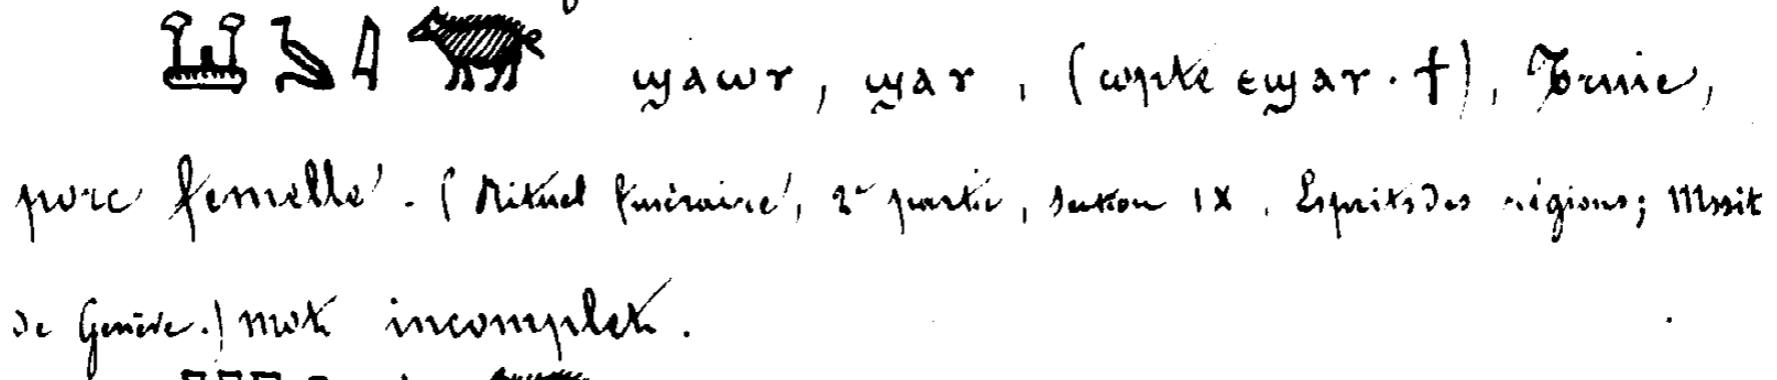 𓆷 𓇋 𓃟 ϣⲁⲱⲩ, ϣⲁⲩ, (copte ⲉϣⲁⲩ. ϯ), Truie,
porc femelle. (Rituel funéraire, 2e partie, section IX. Esprits des régions; Mssit
de Genève.) mot incomplet.